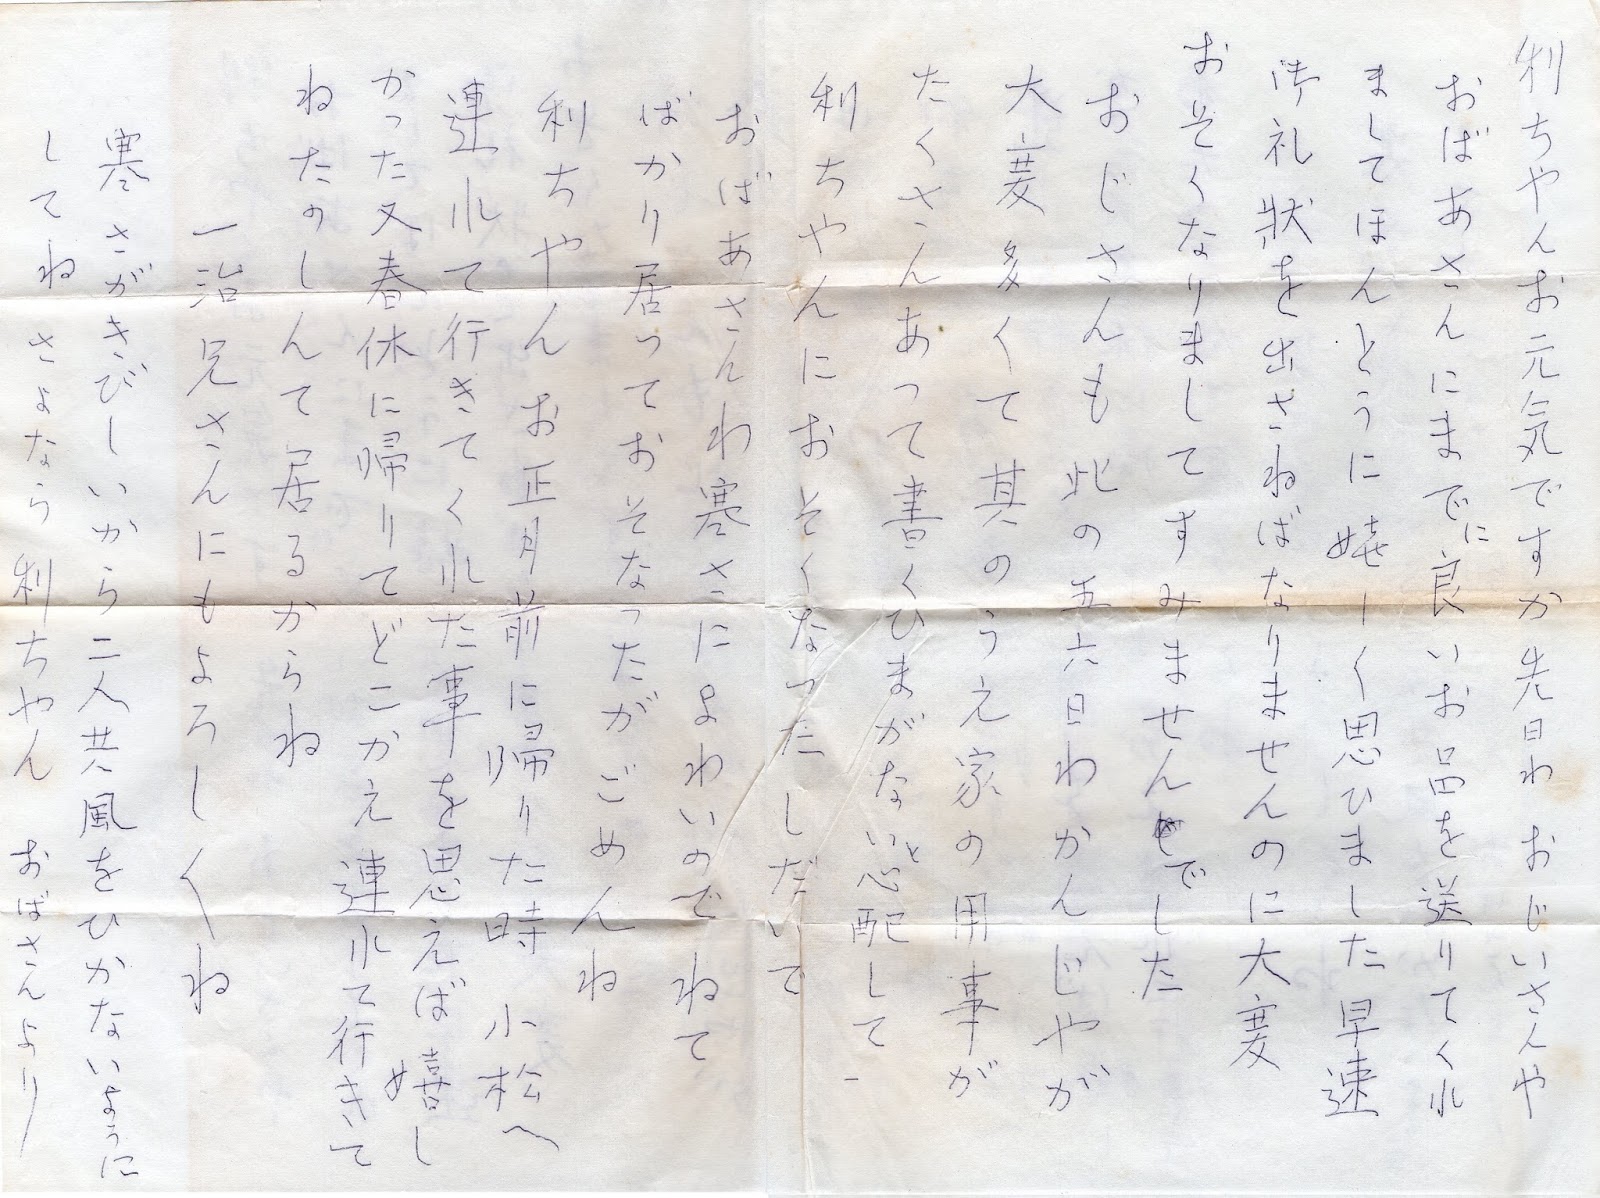 利ちやんお元気ですか先日わ おじいさんや
おばあさんにまでに良いお品を送りてくれ
ましてほんとうに嬉しく思ひました早速
御礼状を出さねばなりませんのに大変
おそくなりましてすみませんでした
おじさんも此の五六日わかんじやが
大変多くて其のうえ家の用事が
たくさんあって書くひまがないと心配して
利ちやんにおそくなったしだいで
おばあさんわ寒さによわいのでねて
ばかり居っておそなったがごめんね
利ちやん お正月前に帰りた時 小松へ
連れて行きてくれた事を思えば嬉し
かった又春休に帰りてどこかえ連れて行きて
ねたのしんて居るからね
一治兄さんにもよろしくね
寒さがきびしいから二人共風をひかないように
してね さよなら 利ちやん おばさんより